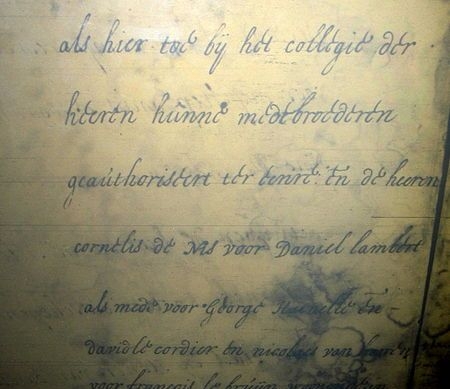 als hier toe bij het collegie der
heeren hunne medebroederen
geauthoriseert ter eenre. En de heeren
cornelis de Nis voor Daniel lambert
als mede voor George En
david le cordier en nicolaes van
voor francois le bruijn